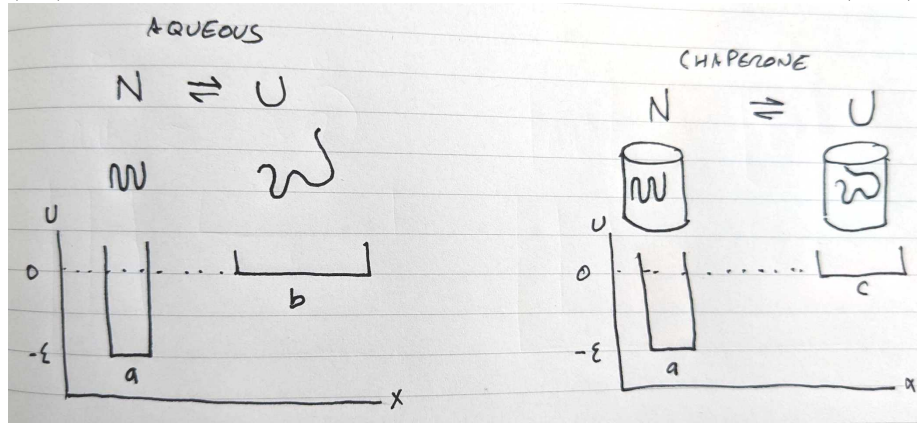 AQUEOUS
N ⇌ U
U
0
-ε
a
b
x
CHAPERONE
N ⇌ U
U
0
-ε
a
c
x